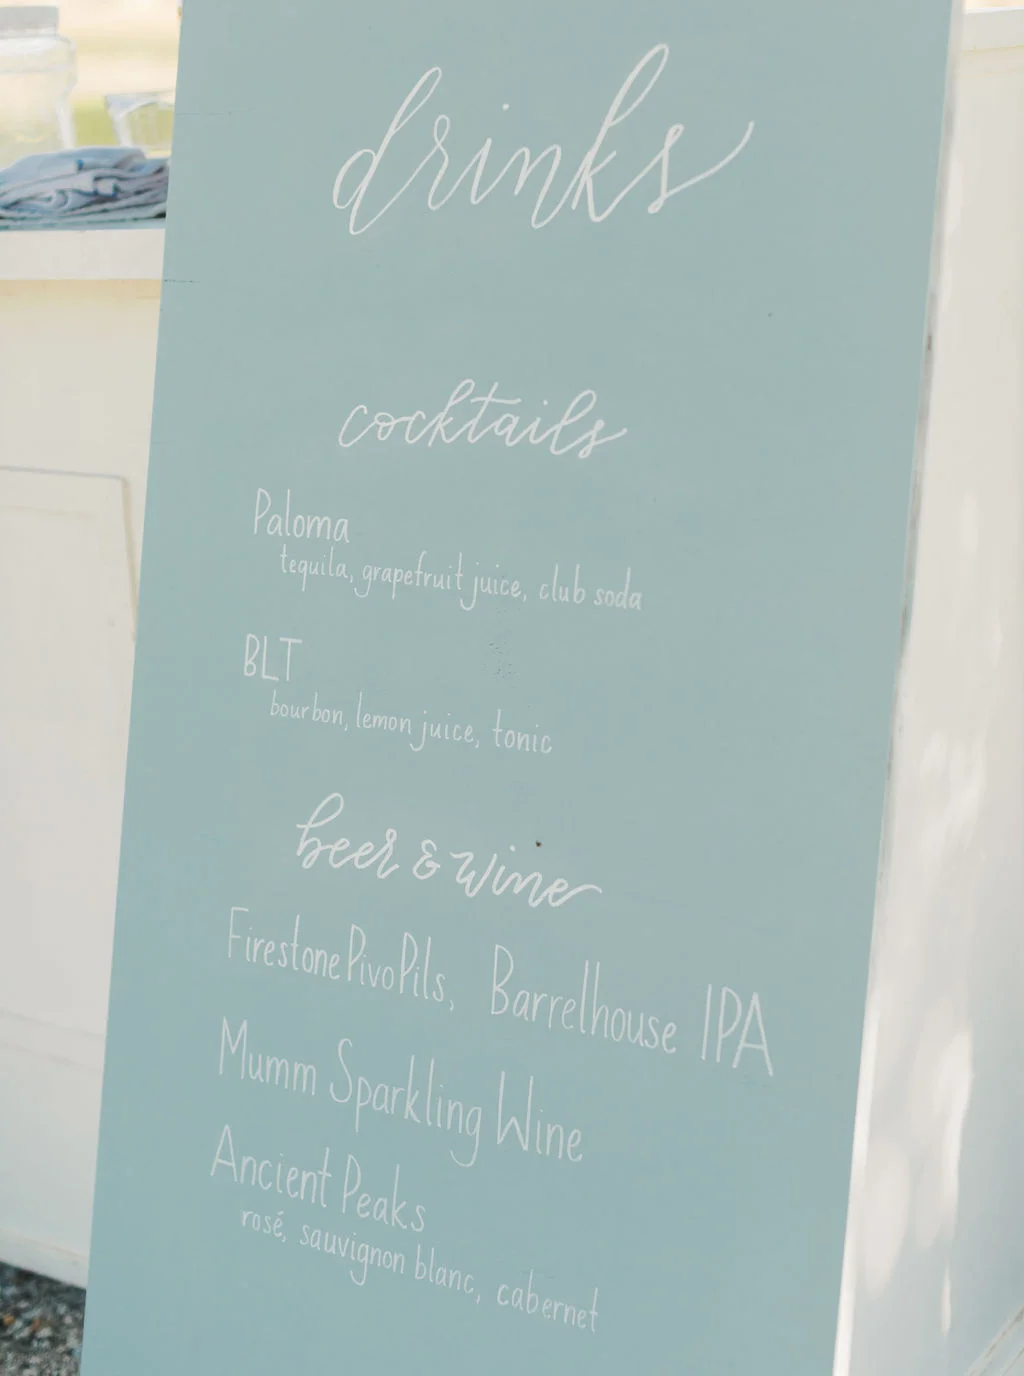 drinks
cocktails
Paloma
tequila, grapefruit juice, club soda
BLT
bourbon, lemon juice, tonic
beer & wine
Firestone Pivo Pils, Barrelhouse IPA
Mumm Sparkling Wine
Ancient Peaks
rosé, sauvignon blanc, cabernet